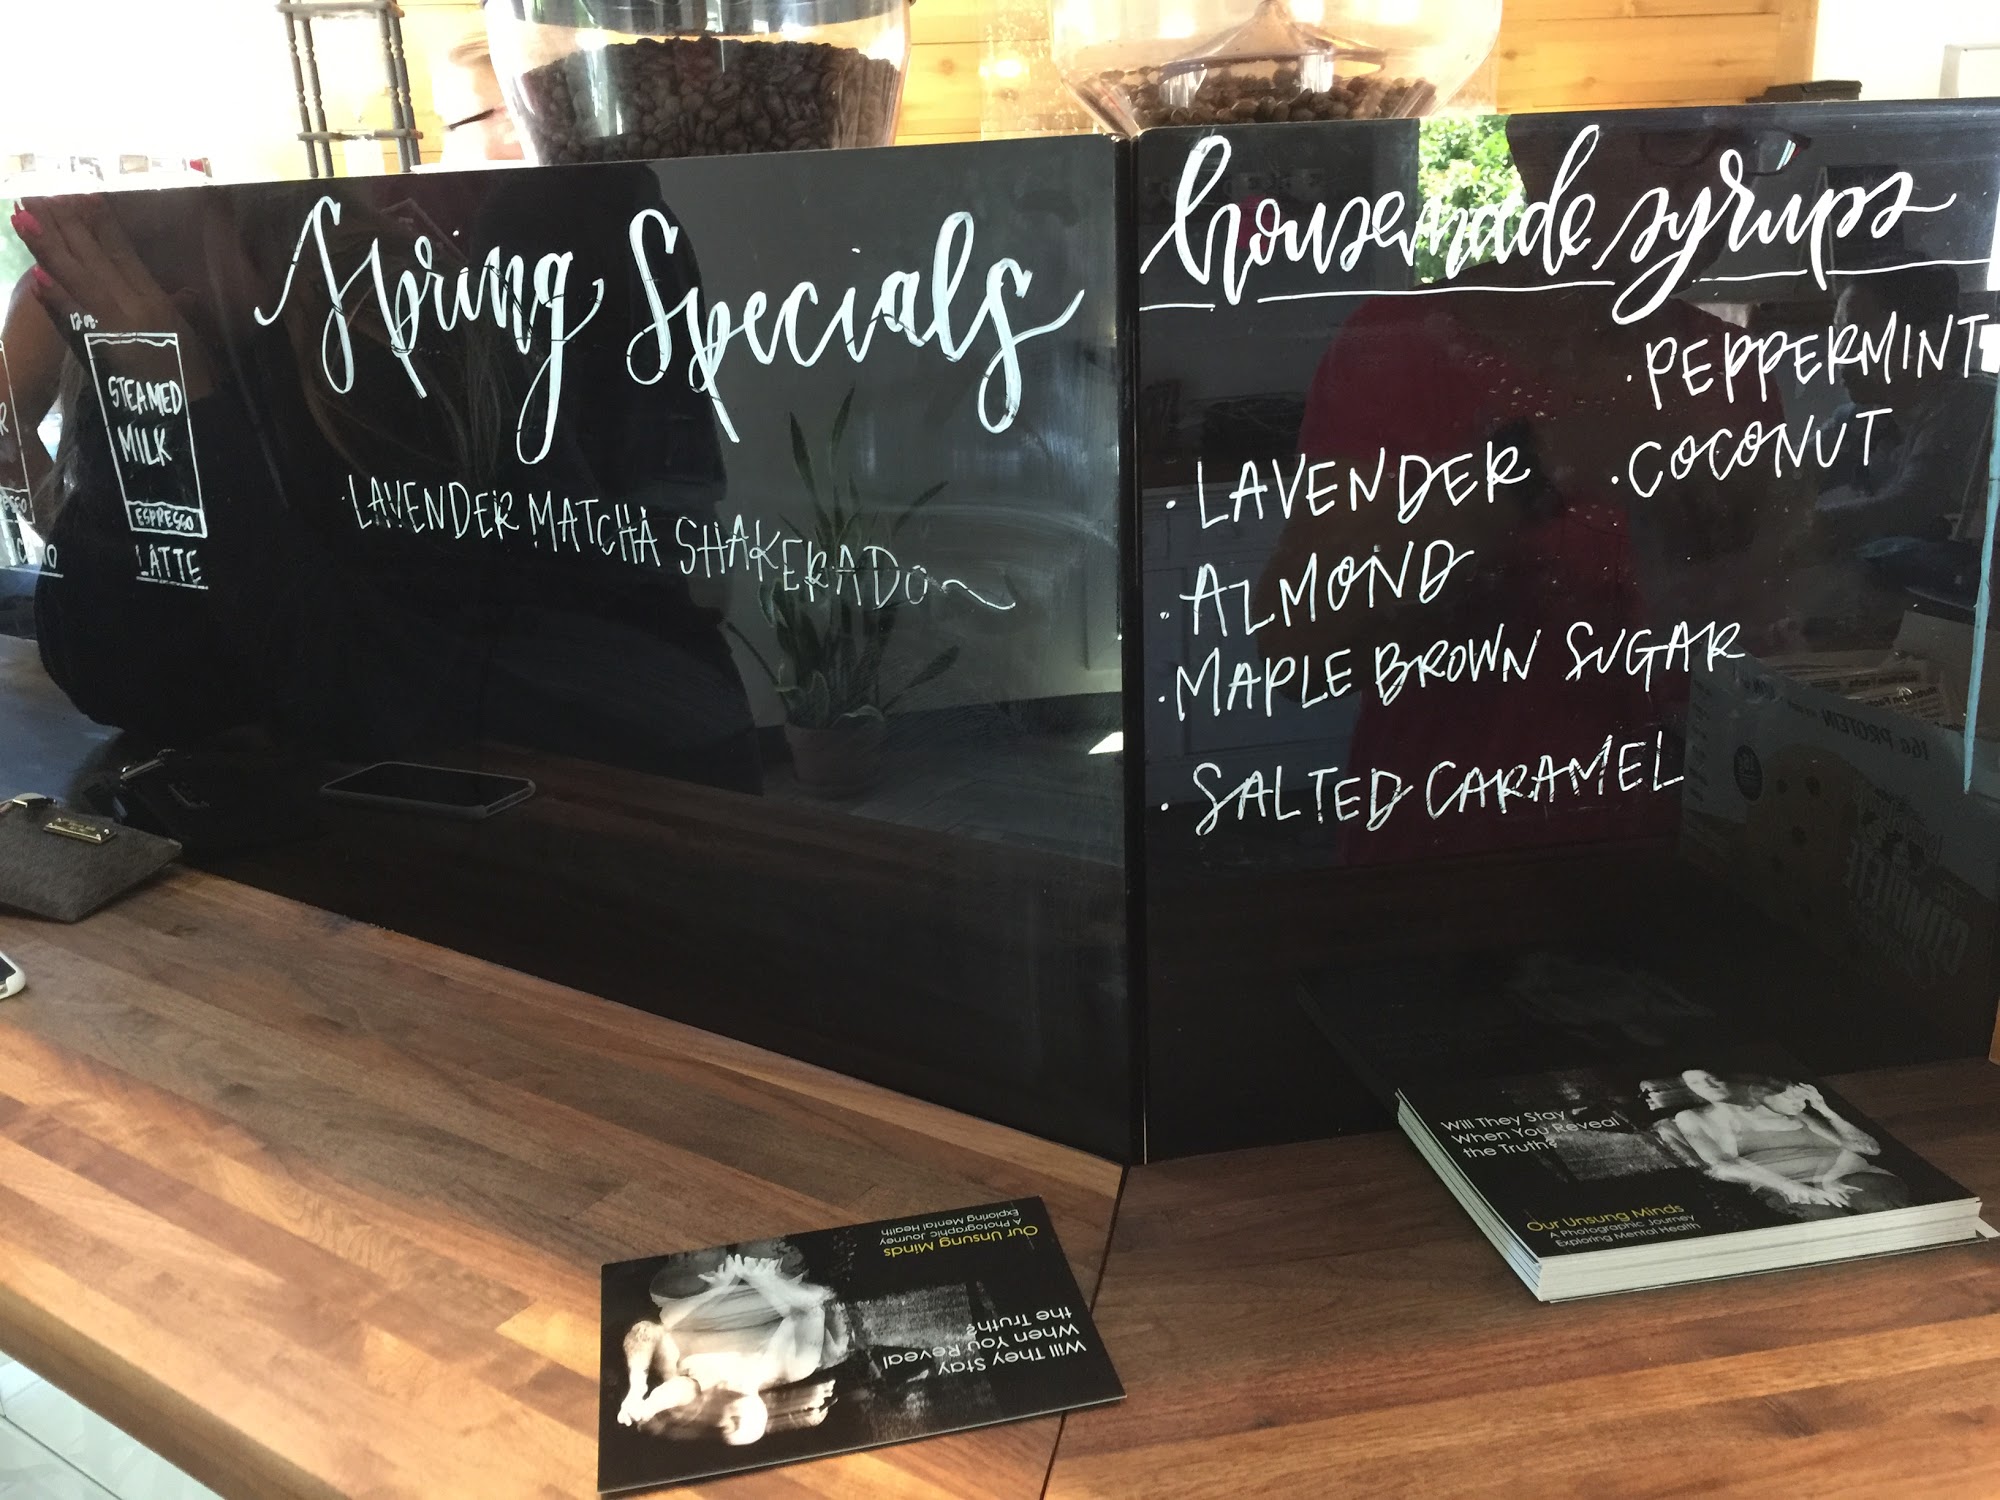 12 oz.
STEAMED
MILK
ESPRESSO
LATTE
Spring Specials
·LAVENDER MATCHA SHAKERADO
housemade syrups
·PEPPERMINT
·COCONUT
·LAVENDER
·ALMOND
·MAPLE BROWN SUGAR
·SALTED CARAMEL
16g PROTEIN
COMPLETE
Will They Stay
When You Reveal
the Truth?
Our Unsung Minds
A Photographic Journey
Exploring Mental Health
Will They Stay
When You Reveal
the Truth?
Our Unsung Minds
A Photographic Journey
Exploring Mental Health